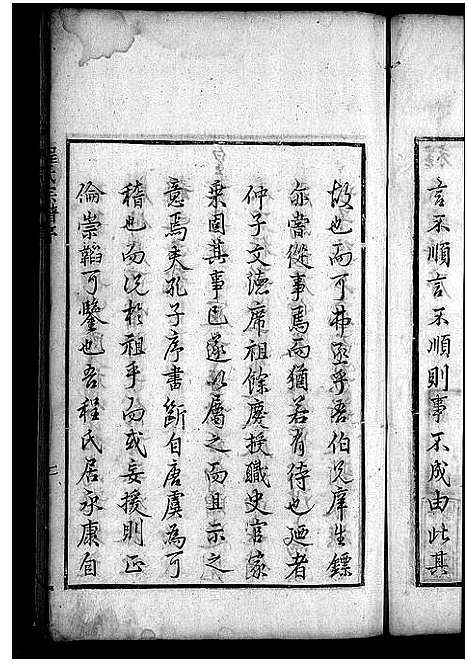 言不順言不順則事不成由此其
故也而可弗亟乎吾伯兄庠生鏢
亦嘗從事焉而猶若有待也迺者
仲子文德席祖餘慶授職史官家
乘固其事也遂以屬之而且示之
意焉夫孔子序書斷自唐虞為可
稽也而況於祖乎而或妄援則正
倫崇韜可鑒也吾程氏居永康自
程氏宗譜序